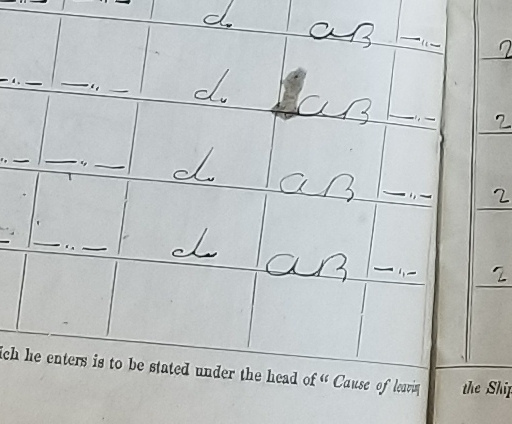 do aB —"— 2
—"— —"— do aB —"— 2
"— —"— do aB —"— 2
— —"— do aB —"— 2
ich he enters is to be stated under the head of “ Cause of leaving the Ship